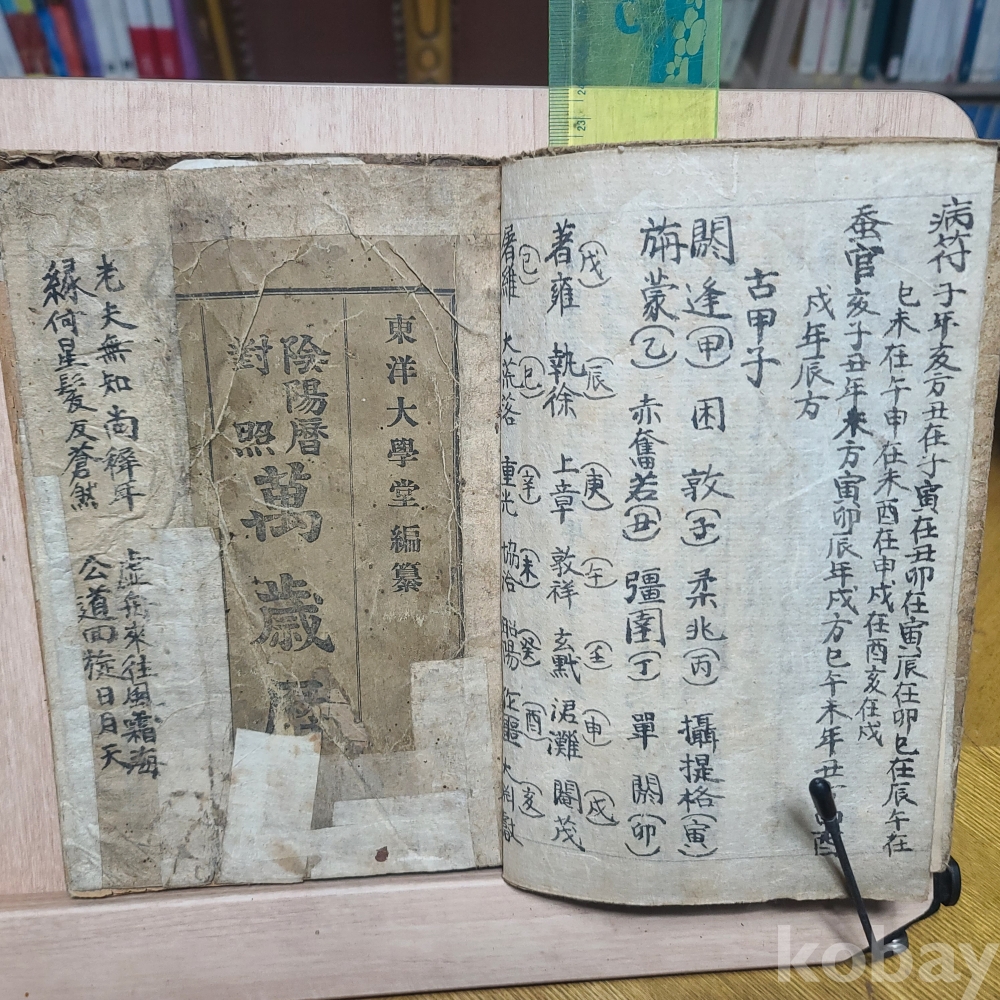 病符 子年亥方丑在子寅在丑卯在寅辰在卯巳在辰午在
巳未在午申在未酉在申戌在酉亥在戌
蚕官 亥子丑年未方寅卯辰年戌方巳午未年丑
酉
戌年辰方
古甲子
閼逢(甲) 困敦(子) 柔兆(丙) 攝提格(寅)
旃蒙(乙) 赤奮若(丑) 彊圉(丁) 單閼(卯)
著雍(戊) 執徐(辰) 上章(庚) 敦牂(午) 玄黓(壬) 涒灘(申) 閹茂(戌)
屠維(己) 大荒落(巳) 重光(辛) 協洽(未) 昭陽(癸) 作噩(酉) 大淵獻(亥)
東洋大學堂編纂
陰陽曆
對照
萬歲曆
老夫無知尚 年 虛舟來往風霜海
緣何星髮反蒼然 公道回旋日月天
23
24
kobay